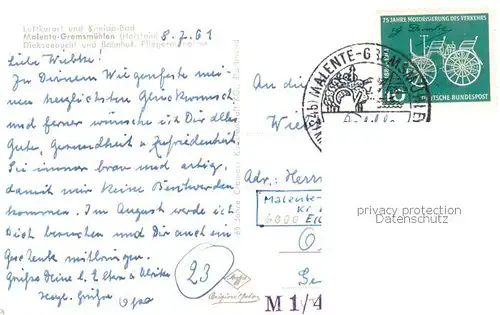 Luftkurort und Kneipp-Bad
Malente-Gremsmühlen (Holstein)
Dieksee und Bahnhof, Fliegeraufnahme
8.7.61
Liebe Wiebke!
Zu Deinem Wiegenfeste mei-
nen herzlichsten Glückwunsch
und ferner wünsche ich Dir alles
Gute, Gesundheit u. Zufriedenheit.
Sei immer brav und artig,
damit mir keine Beschwerden
kommen. Im August werde ich
Dich besuchen und Dir auch ein
Geschenk mitbringen.
Grüße Deine l. Eltern u. Ulrike
Herzl. Grüße Opa
23
Agfa
Originalfoto
M 1/4
An die
Wie
Adr.: Herr
Malente-
Kr
(24b) MALENTE-GREMSMÜHLEN
75 JAHRE MOTORISIERUNG DES VERKEHRS
10
DEUTSCHE BUNDESPOST
privacy protection
Datenschutz